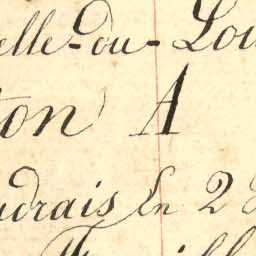 elle-du-Lou
ton A
udrais En 2